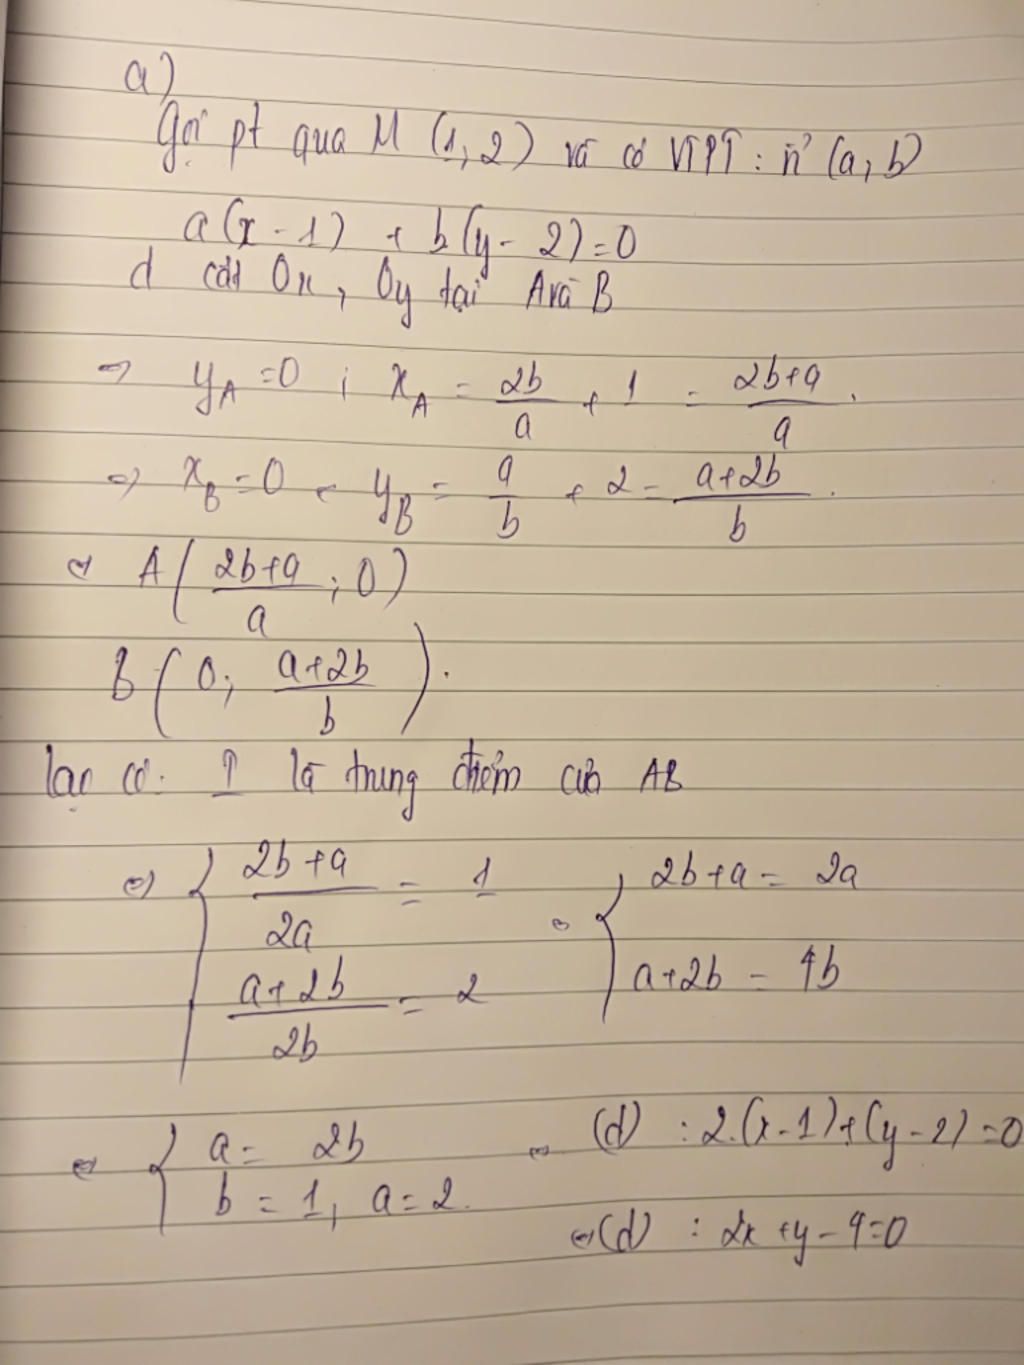 a)
Gọi pt qua M (1, 2) và có VTPT : n⃗ (a, b)
a(x - 1) + b(y - 2) = 0
d cắt Ox, Oy tại A và B
⇒ y_A = 0 ; x_A = 2b/a + 1 = (2b+a)/a .
⇒ x_B = 0 ; y_B = a/b + 2 = (a+2b)/b .
⇒ A( (2b+a)/a ; 0 )
B( 0 ; (a+2b)/b ) .
lại có: I là trung điểm của AB
⇔ { (2b+a)/2a = 1 ⇔ { 2b+a = 2a
(a+2b)/2b = 2 a+2b = 4b
⇔ { a = 2b ⇒ (d) : 2.(x-1)+(y-2) = 0
b = 1, a = 2. ⇔ (d) : 2x+y-4=0